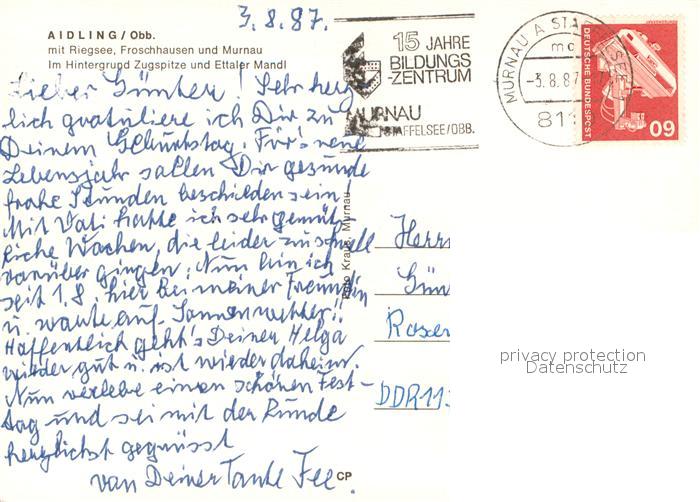 3.8.87.
AIDLING/Obb.
mit Riegsee, Froschhausen und Murnau
Im Hintergrund Zugspitze und Ettaler Mandl
15 JAHRE
BILDUNGS
-ZENTRUM
MURNAU
STAFFELSEE/OBB.
MURNAU A STAFFELSEE
mc
-3.8.87
811
DEUTSCHE BUNDESPOST
60
Lieber Günter! Sehr herz
lich gratuliere ich Dir zu
Deinem Geburtstag. Für's neue
Lebensjahr sollen Dir gesunde
frohe Stunden beschieden sein!
Mit Vati hatte ich sehr gemüt-
liche Wochen, die leider zu schnell
vorüber gingen. Nun bin ich
seit 1.8. hier bei meiner Freundin
u. warte auf Sonnenwetter!!
Hoffentlich geht's Deiner Helga
wieder gut u. ist wieder daheim.
Nun verlebe einen schönen Fest-
tag und sei mit der Runde
herzlichst gegrüsst
von Deiner Tante Fee.
Krause, Murnau
CP
Herrn
Gün
Rosen
DDR 113
privacy protection
Datenschutz